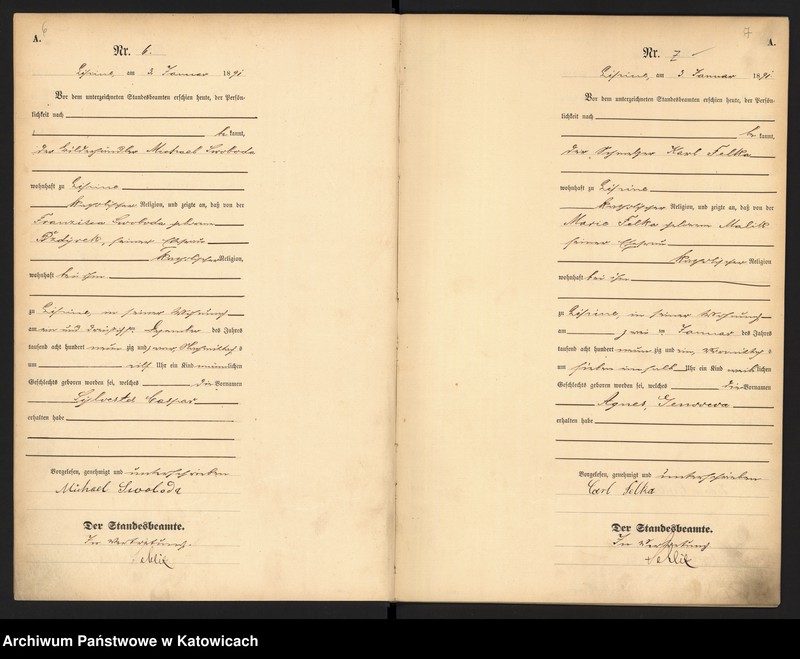 6
A.
Nr. 6.
am 3. Januar 1891
Vor dem unterzeichneten Standesbeamten erschien heute, der Persön-
lichkeit nach
be kannt,
der Michael Swoboda
wohnhaft zu
katholischer Religion, und zeigte an, daß von der
Franziska Swoboda geborene
seiner Ehefrau
katholischer Religion,
wohnhaft bei ihm
zu in seiner Wohnung
am ein und dreißigsten Dezember des Jahres
tausend acht hundert neun zig und Nachmittags
um Uhr ein Kind männlichen
Geschlechts geboren worden sei, welches die Vornamen
Sylvester Caspar
erhalten habe
Vorgelesen, genehmigt und unterschrieben
Michael Swoboda
Der Standesbeamte.
In Vertretung.
7
A.
Nr. 7
am 3. Januar 1891
Vor dem unterzeichneten Standesbeamten erschien heute, der Persön-
lichkeit nach
be kannt,
der Karl Felka
wohnhaft zu
katholischer Religion, und zeigte an, daß von der
Marie Felka geborene Malik
seiner Ehefrau
katholischer Religion
wohnhaft bei ihm
zu in seiner Wohnung
am zwei ten Januar des Jahres
tausend acht hundert neun zig und ein, Vormittags
um sieben ein halb Uhr ein Kind weiblichen
Geschlechts geboren worden sei, welches die Vornamen
Agnes, Genoveva
erhalten habe
Vorgelesen, genehmigt und unterschrieben
Carl Felka
Der Standesbeamte.
In Vertretung
Archiwum Państwowe w Katowicach